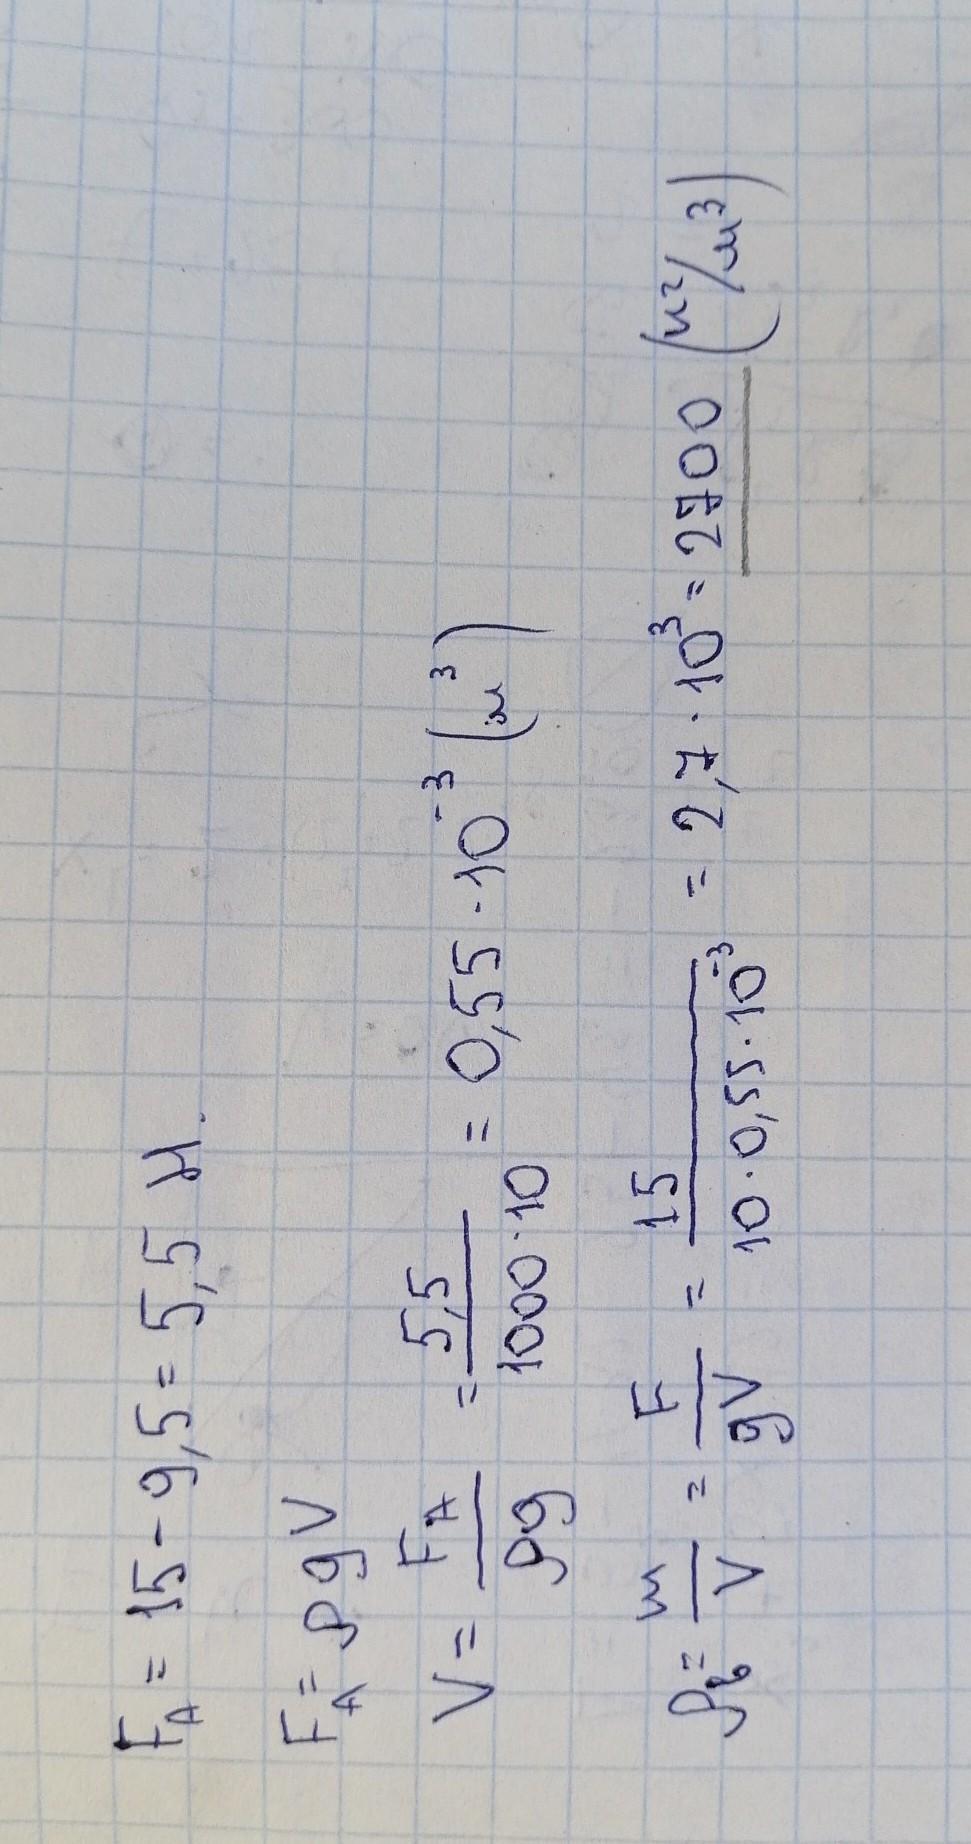 F_A = 15 - 9,5 = 5,5 Н.
F_A = ρgV
V = F_A / ρg = 5,5 / 1000·10 = 0,55·10⁻³ (м³)
ρ_б = m / V = F / gV = 15 / 10·0,55·10⁻³ = 2,7·10³ = 2700 (кг/м³)